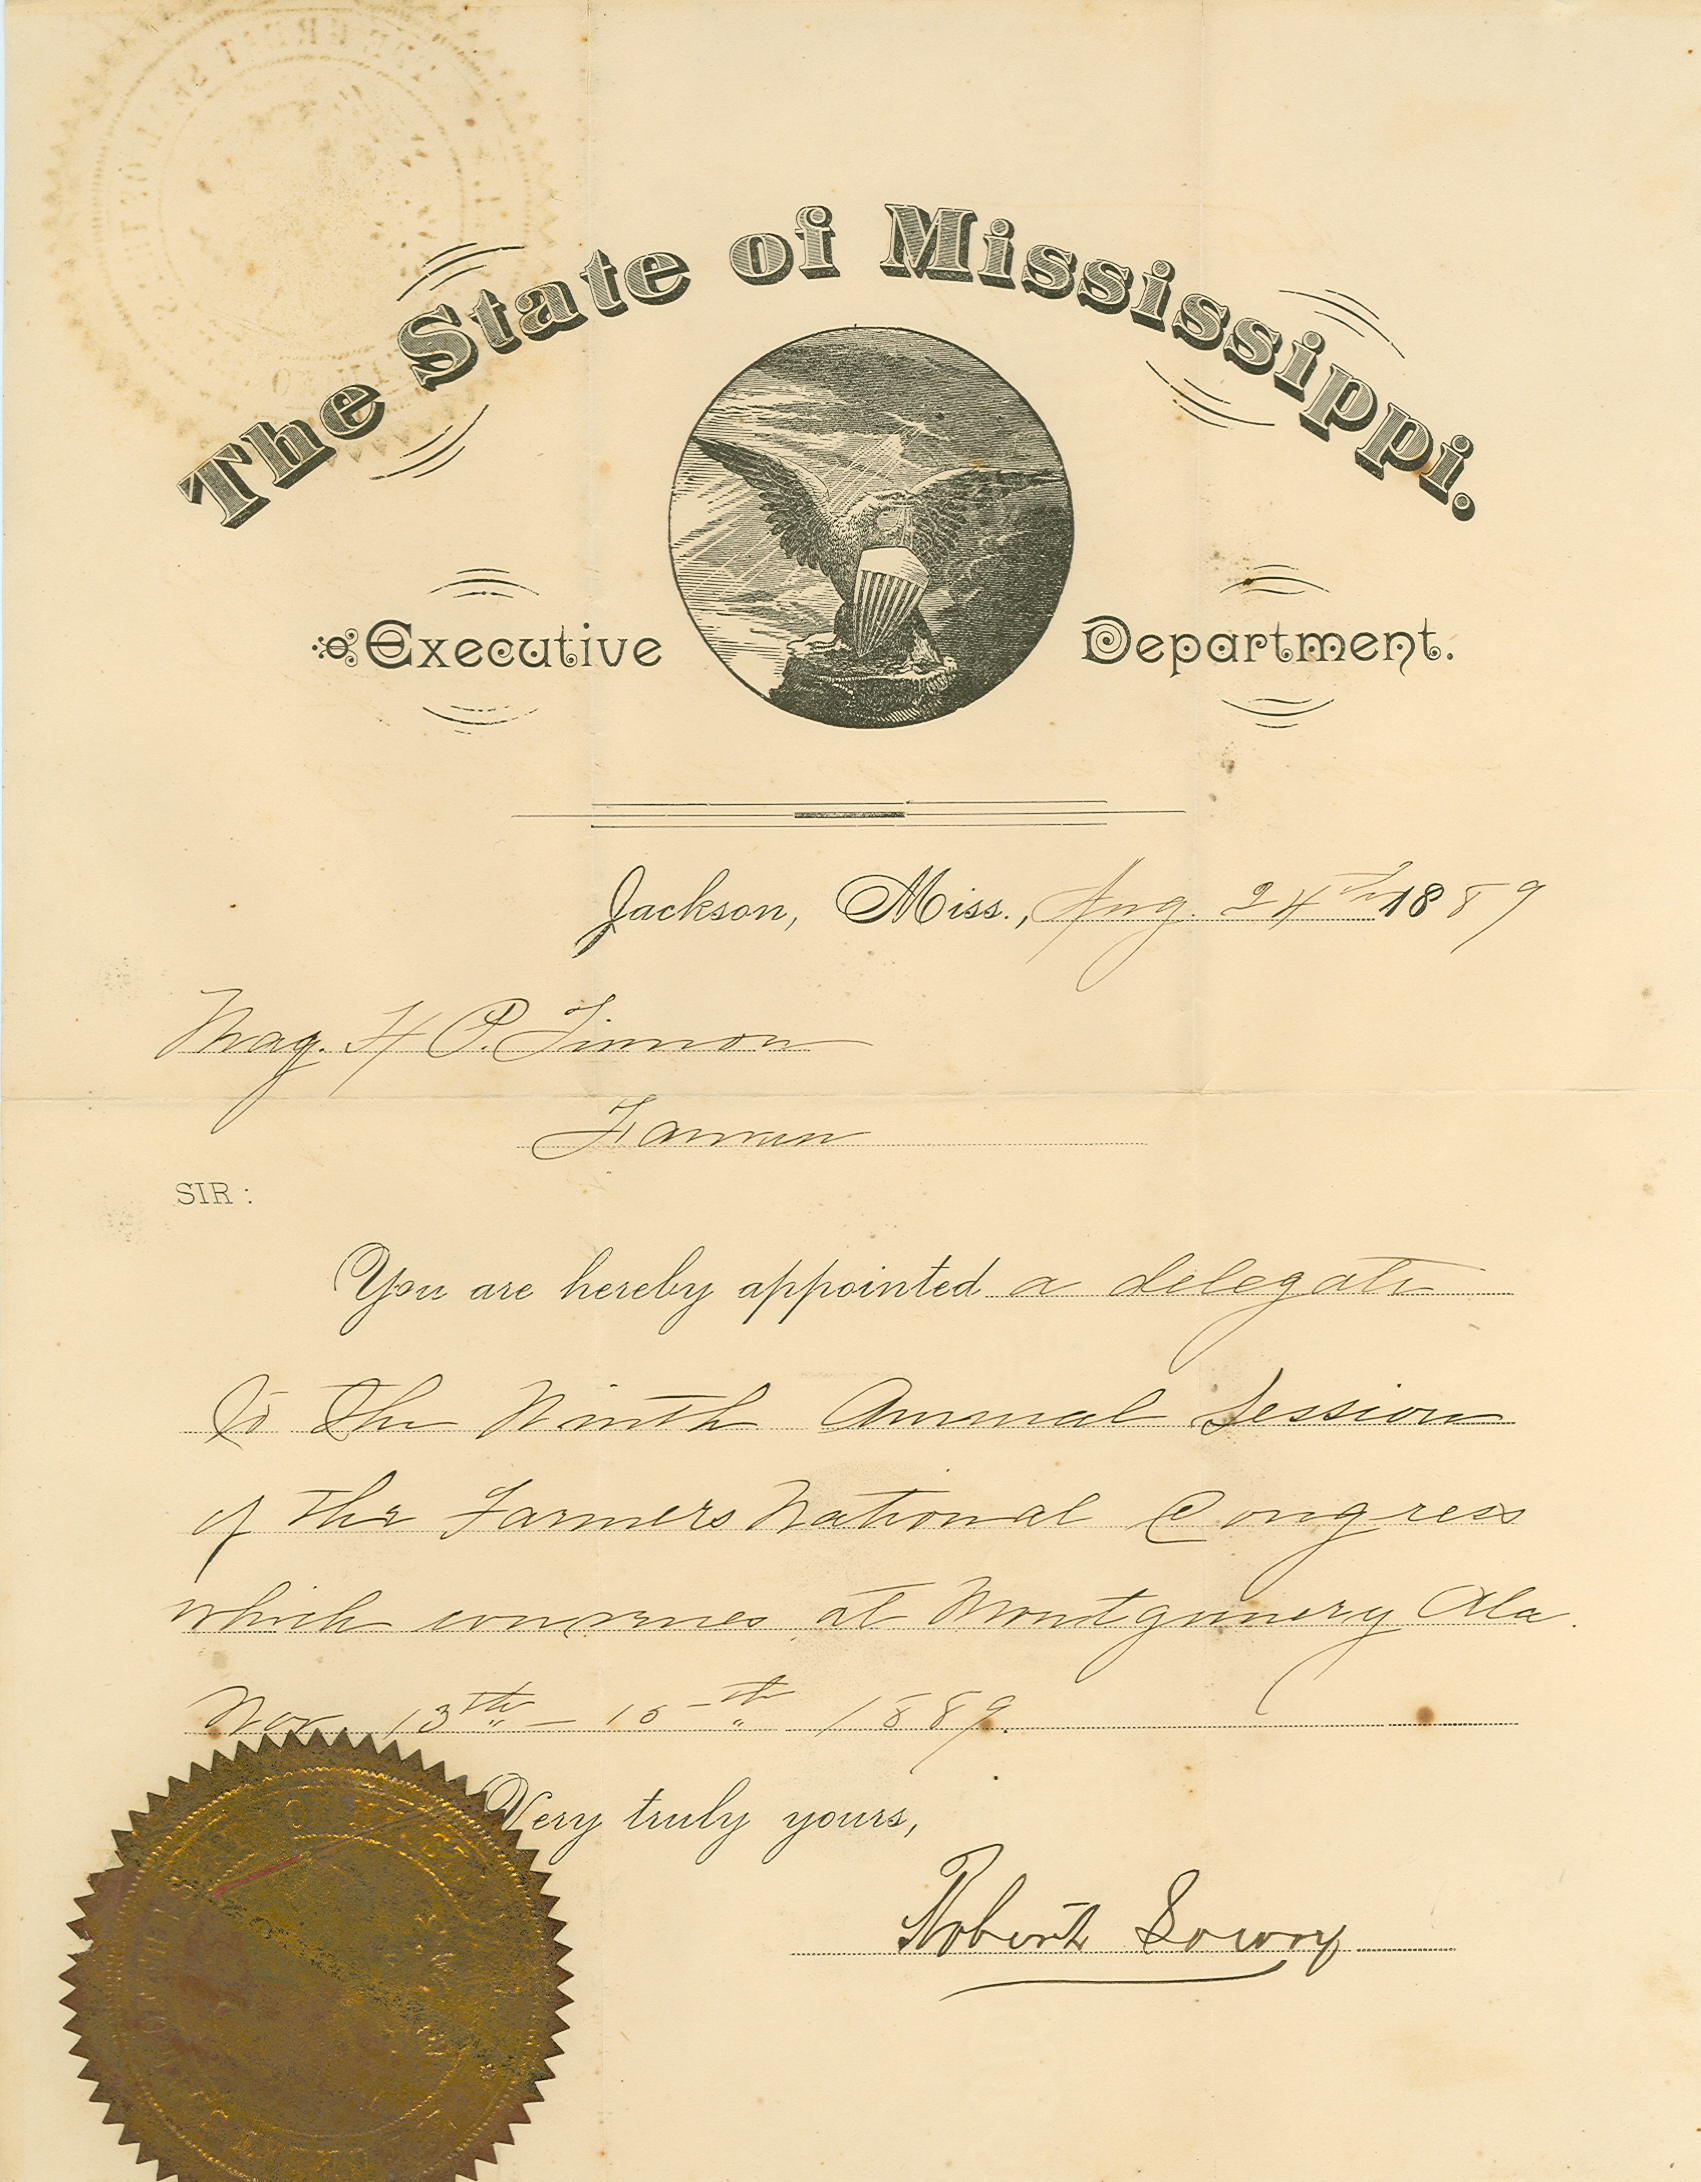 The State of Mississippi.
Executive Department.
Jackson, Miss., Aug. 24th 1889
Maj. H P. Timmon
SIR :
You are hereby appointed a delegate
to the Ninth Annual Session
of the Farmers National Congress
which convenes at Montgomery Ala.
Nov. 13th - 15th 1889.
Very truly yours,
Robert Lowry